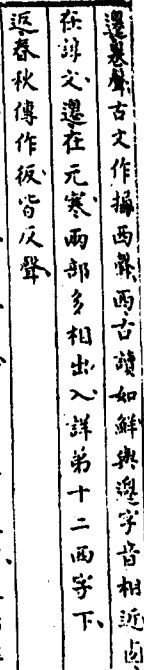 遷䙴聲古文作拪西聲西古讀如鮮與遷字音相近西
在諄文遷在元寒兩部多相出入詳弟十二西字下
返春秋傳作彶皆反聲